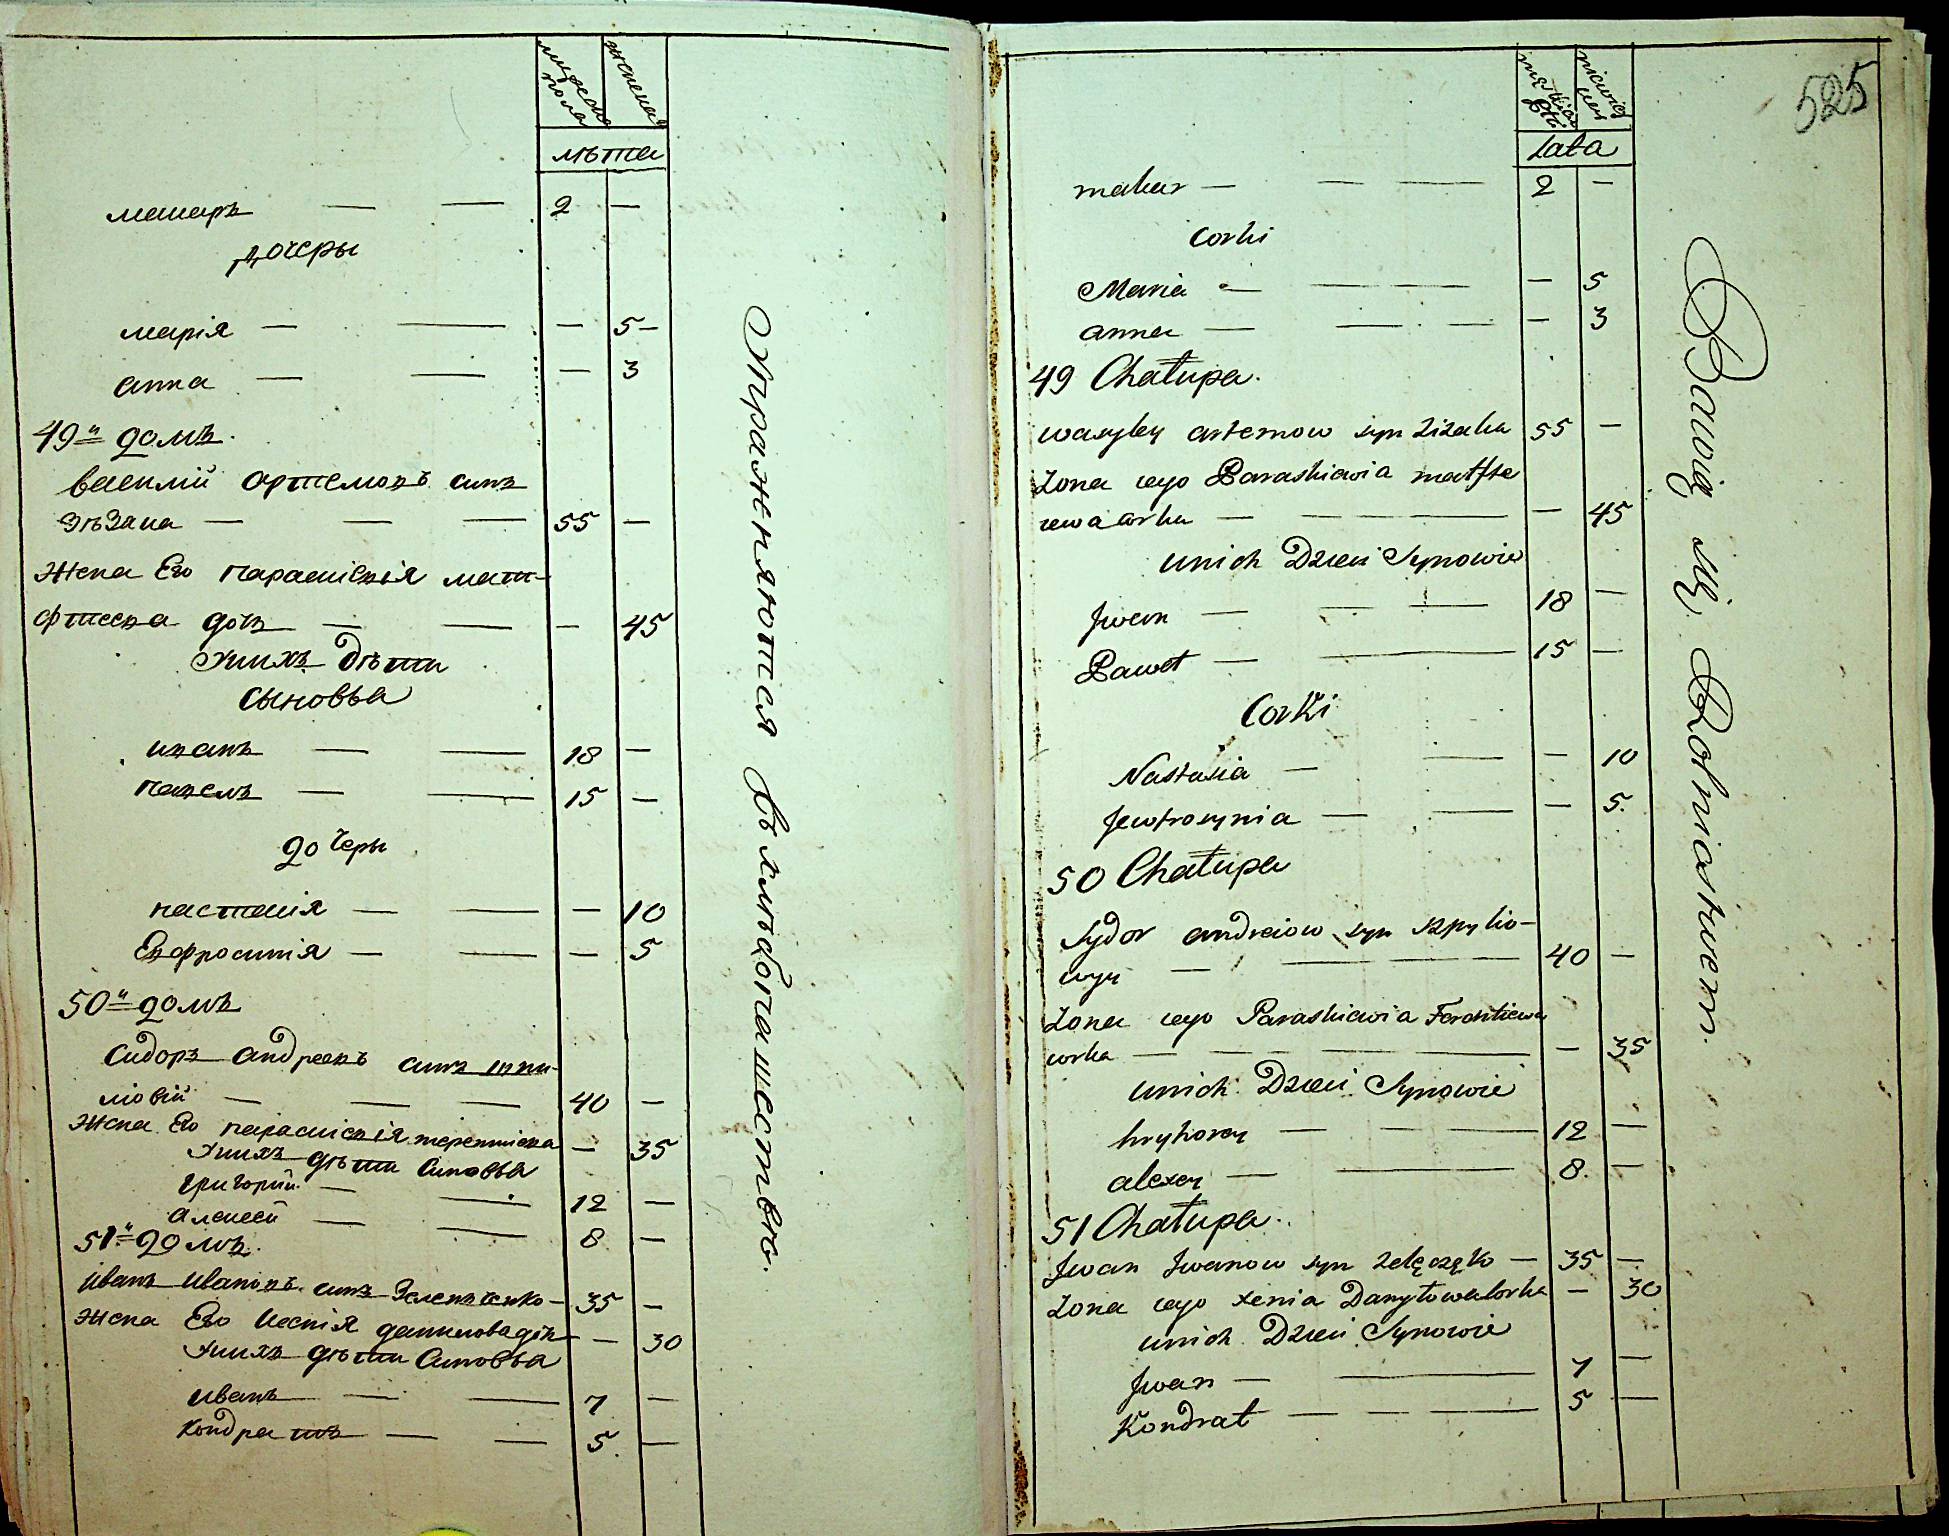 мужеска пола
женска
лѣта
макаръ — — 2 —
дочеры
марія — — — 5 —
анна — — — 3
49й домъ.
василий артемовъ синъ
Зѣзака — — — 55 —
жена Его параскієвія мат-
фтеева дочъ — — — 45
Унихъ дѣти
сыновья
иванъ — — 18 —
павелъ — — 15 —
дочеры
настасія — — — 10
Евфросинія — — — 5
50й домъ
Сидоръ андреевъ синъ шпи-
ліовій — — — 40 —
жена Его параскієвія терентиева — 35
Унихъ дѣти Синовья
григорий — — 12 —
алексей — — 8 —
51й домъ.
иванъ ивановъ синъ Зеленченко — 35 —
жена Его Ксенія данилова дочъ — 30
Унихъ дѣти Синовья
иванъ — — 7 —
Кондратъ — — 5 —
Упражняются Хлѣбопашествомъ.
525
męzkiej płci
niewiesciey
Lata
makar — — — 2 —
Corki
Maria — — — — 5
anna — — — — 3
49 Chałupa.
wasyley artemow syn Zizaka 55 —
Zona iego Paraskiewia matfte
iewa Corka — — — 45
unich Dzieci Synowie
Jwan — — — 18 —
Paweł — — 15 —
Corki
Nastasia — — — 10
Jewfrosynia — — — 5.
50 Chałupa
Sydor andreiow syn szpylio-
wyi — — 40 —
Zona iego Paraskiewia Terentiewa
corka — — — — 35
unich Dzieci Synowie
hryhorey — — — 12 —
alexey — — 8. —
51 Chałupa.
Jwan Jwanow syn zelęczęko — 35 —
Zona iego xenia Danyłowa Corka — 30
unich Dzieci Synowie
Jwan — — 7 —
Kondrat — — — 5 —
Bawią się Rolnictwem.